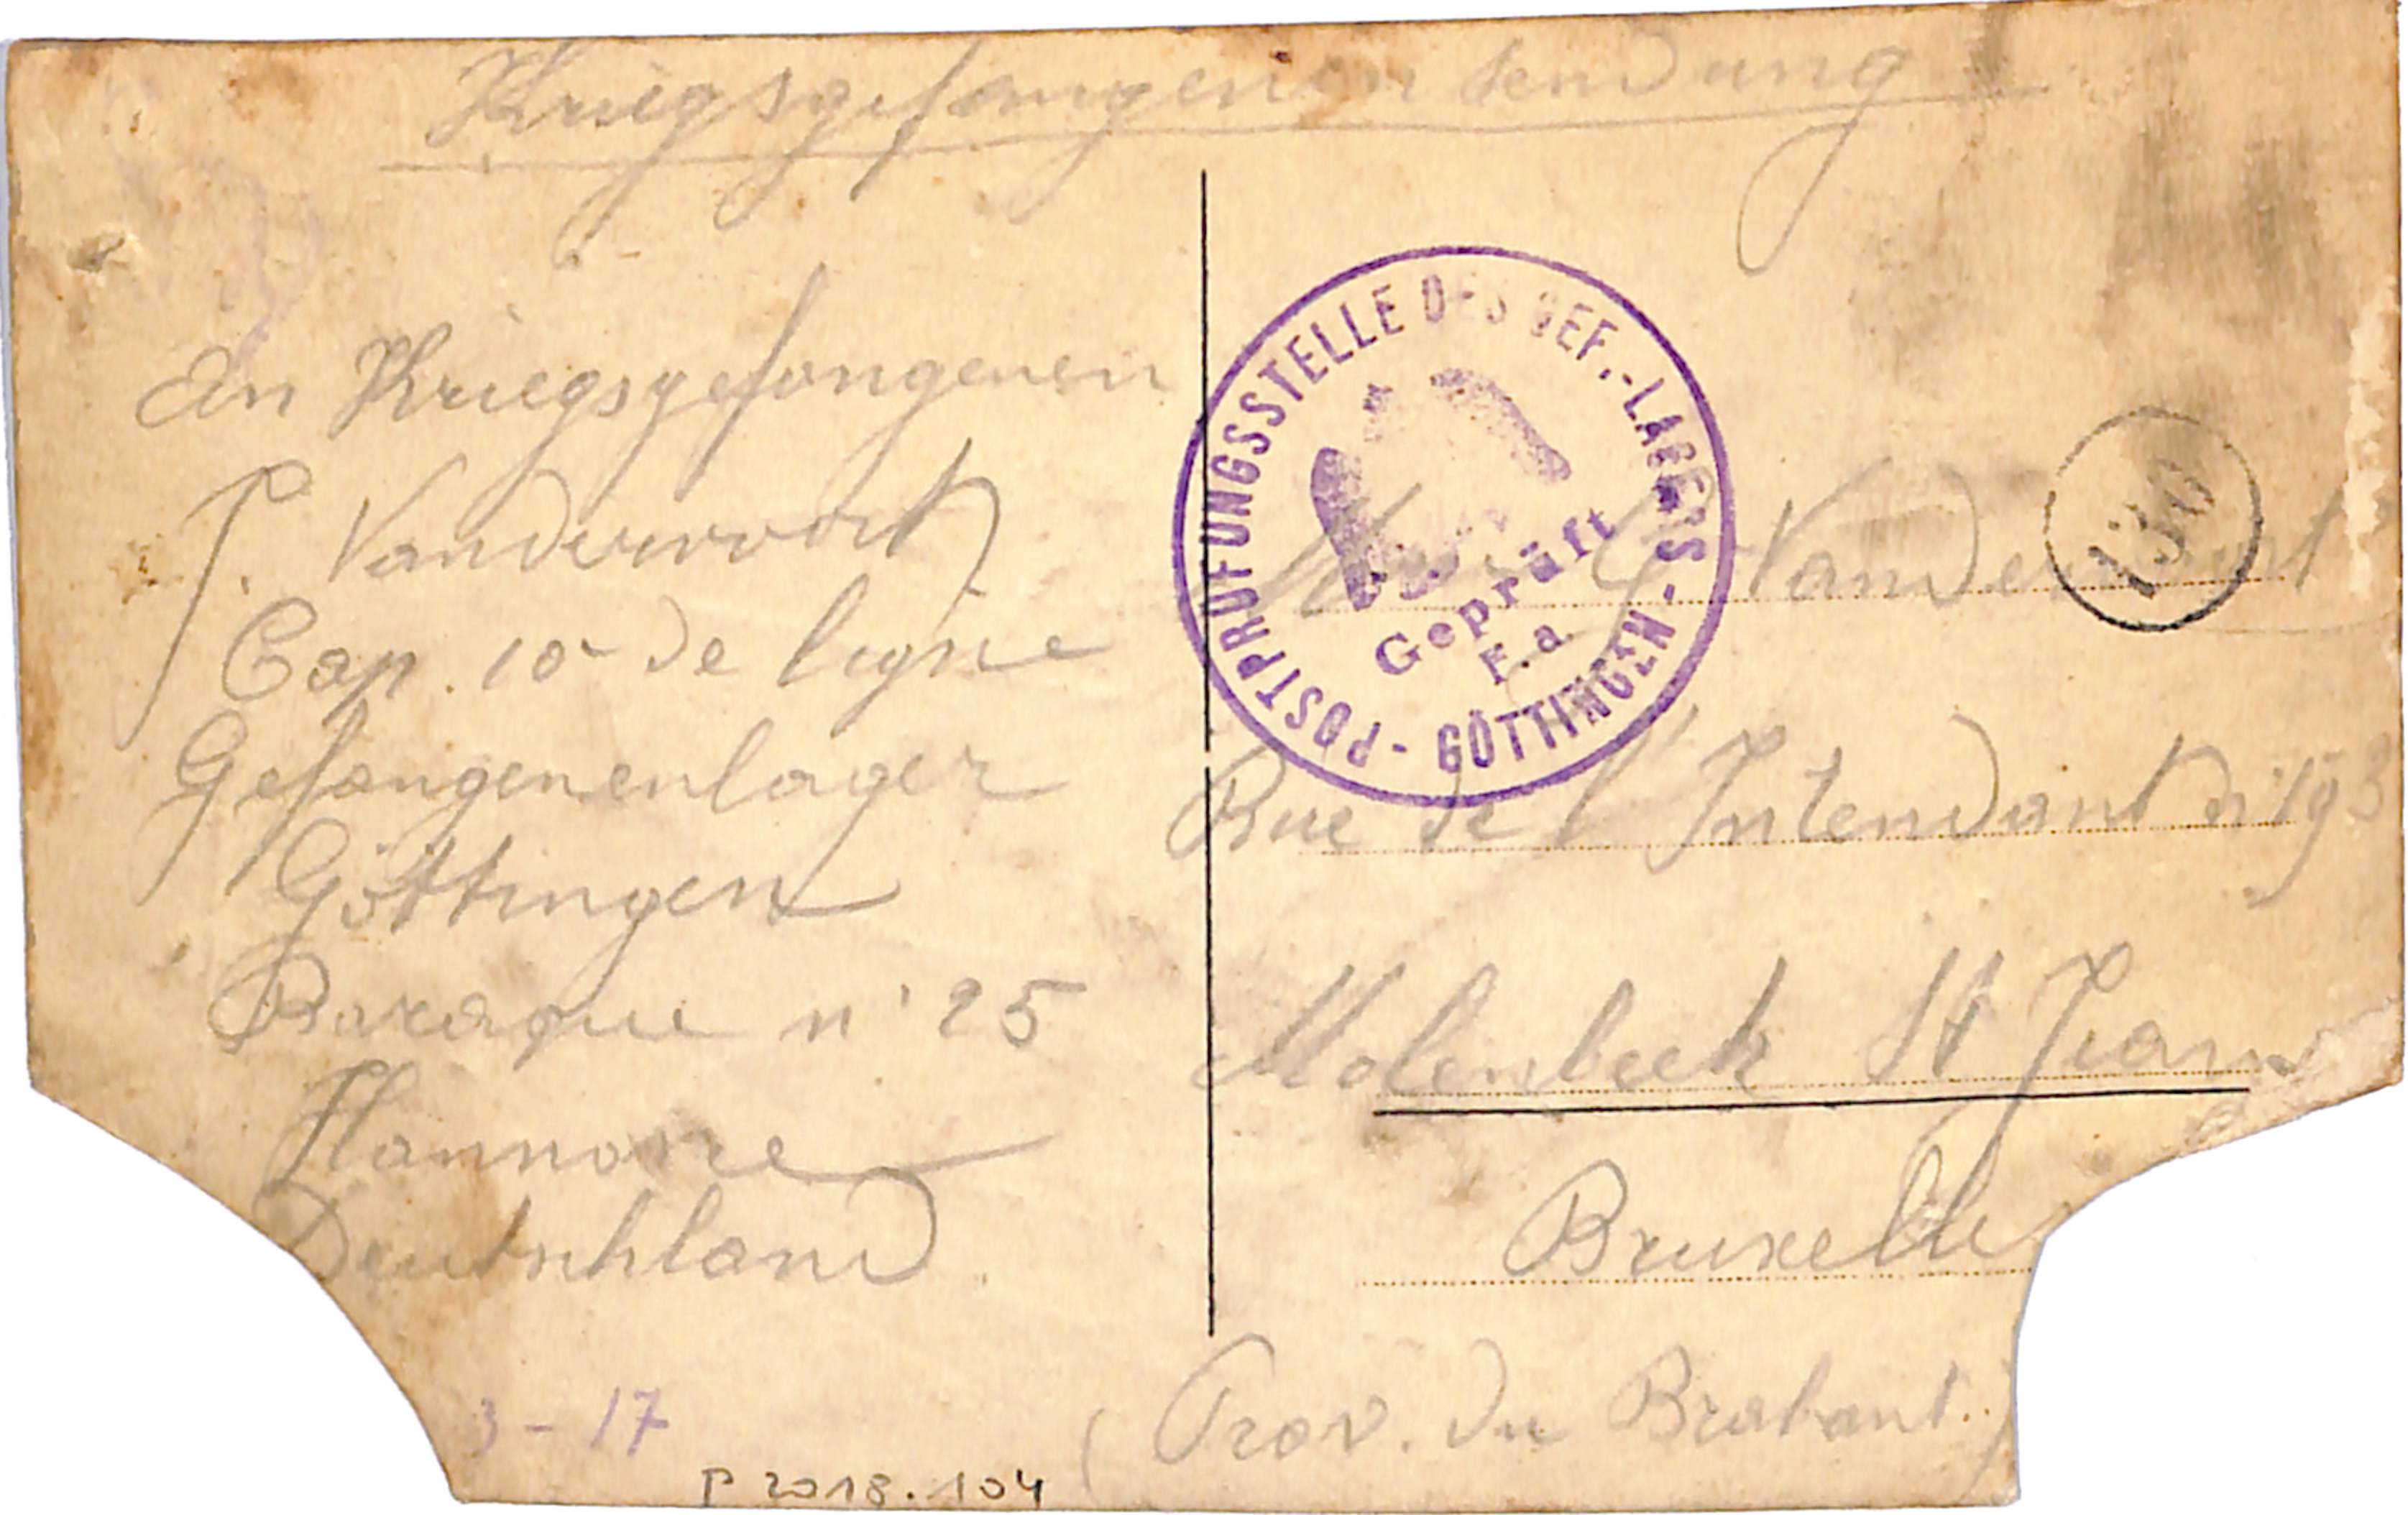 Kriegsgefangenen sendung
An Kriegsgefangenen
P. Vandervoort
Cap. 10 de ligne
Gefangenenlager
Göttingen
Baraque n° 25
Hannovre
Deutschland
3-17
P 2018.104
- POSTPRÜFUNGSSTELLE DES GEF.-LAGERS - GÖTTINGEN
Geprüft
F.a.
130
Vandervoort
Rue de l'Intendant n° 193
Molenbeek St Jean
Bruxelles
(Prov. du Brabant.)